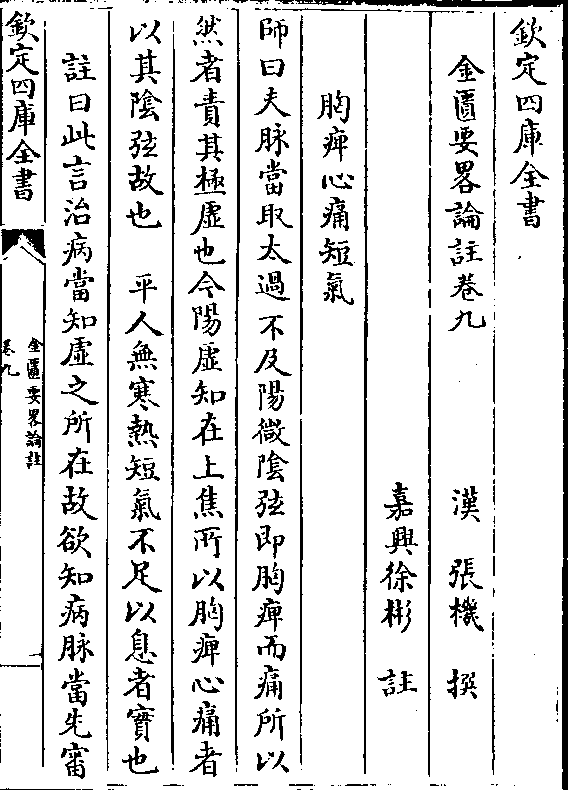 欽定四庫全書
金匱要畧論註卷九
漢　張機　撰
嘉興徐彬　註
胸痺心痛短氣
師曰夫脉當取太過不及陽微陰弦即胸痺而痛所以
然者責其極虛也今陽虛知在上焦所以胸痺心痛者
以其陰弦故也　平人無寒熱短氣不足以息者實也
註曰此言治病當知虛之所在故欲知病脉當先審
欽定四庫全書
金匱要畧論註
卷九
一